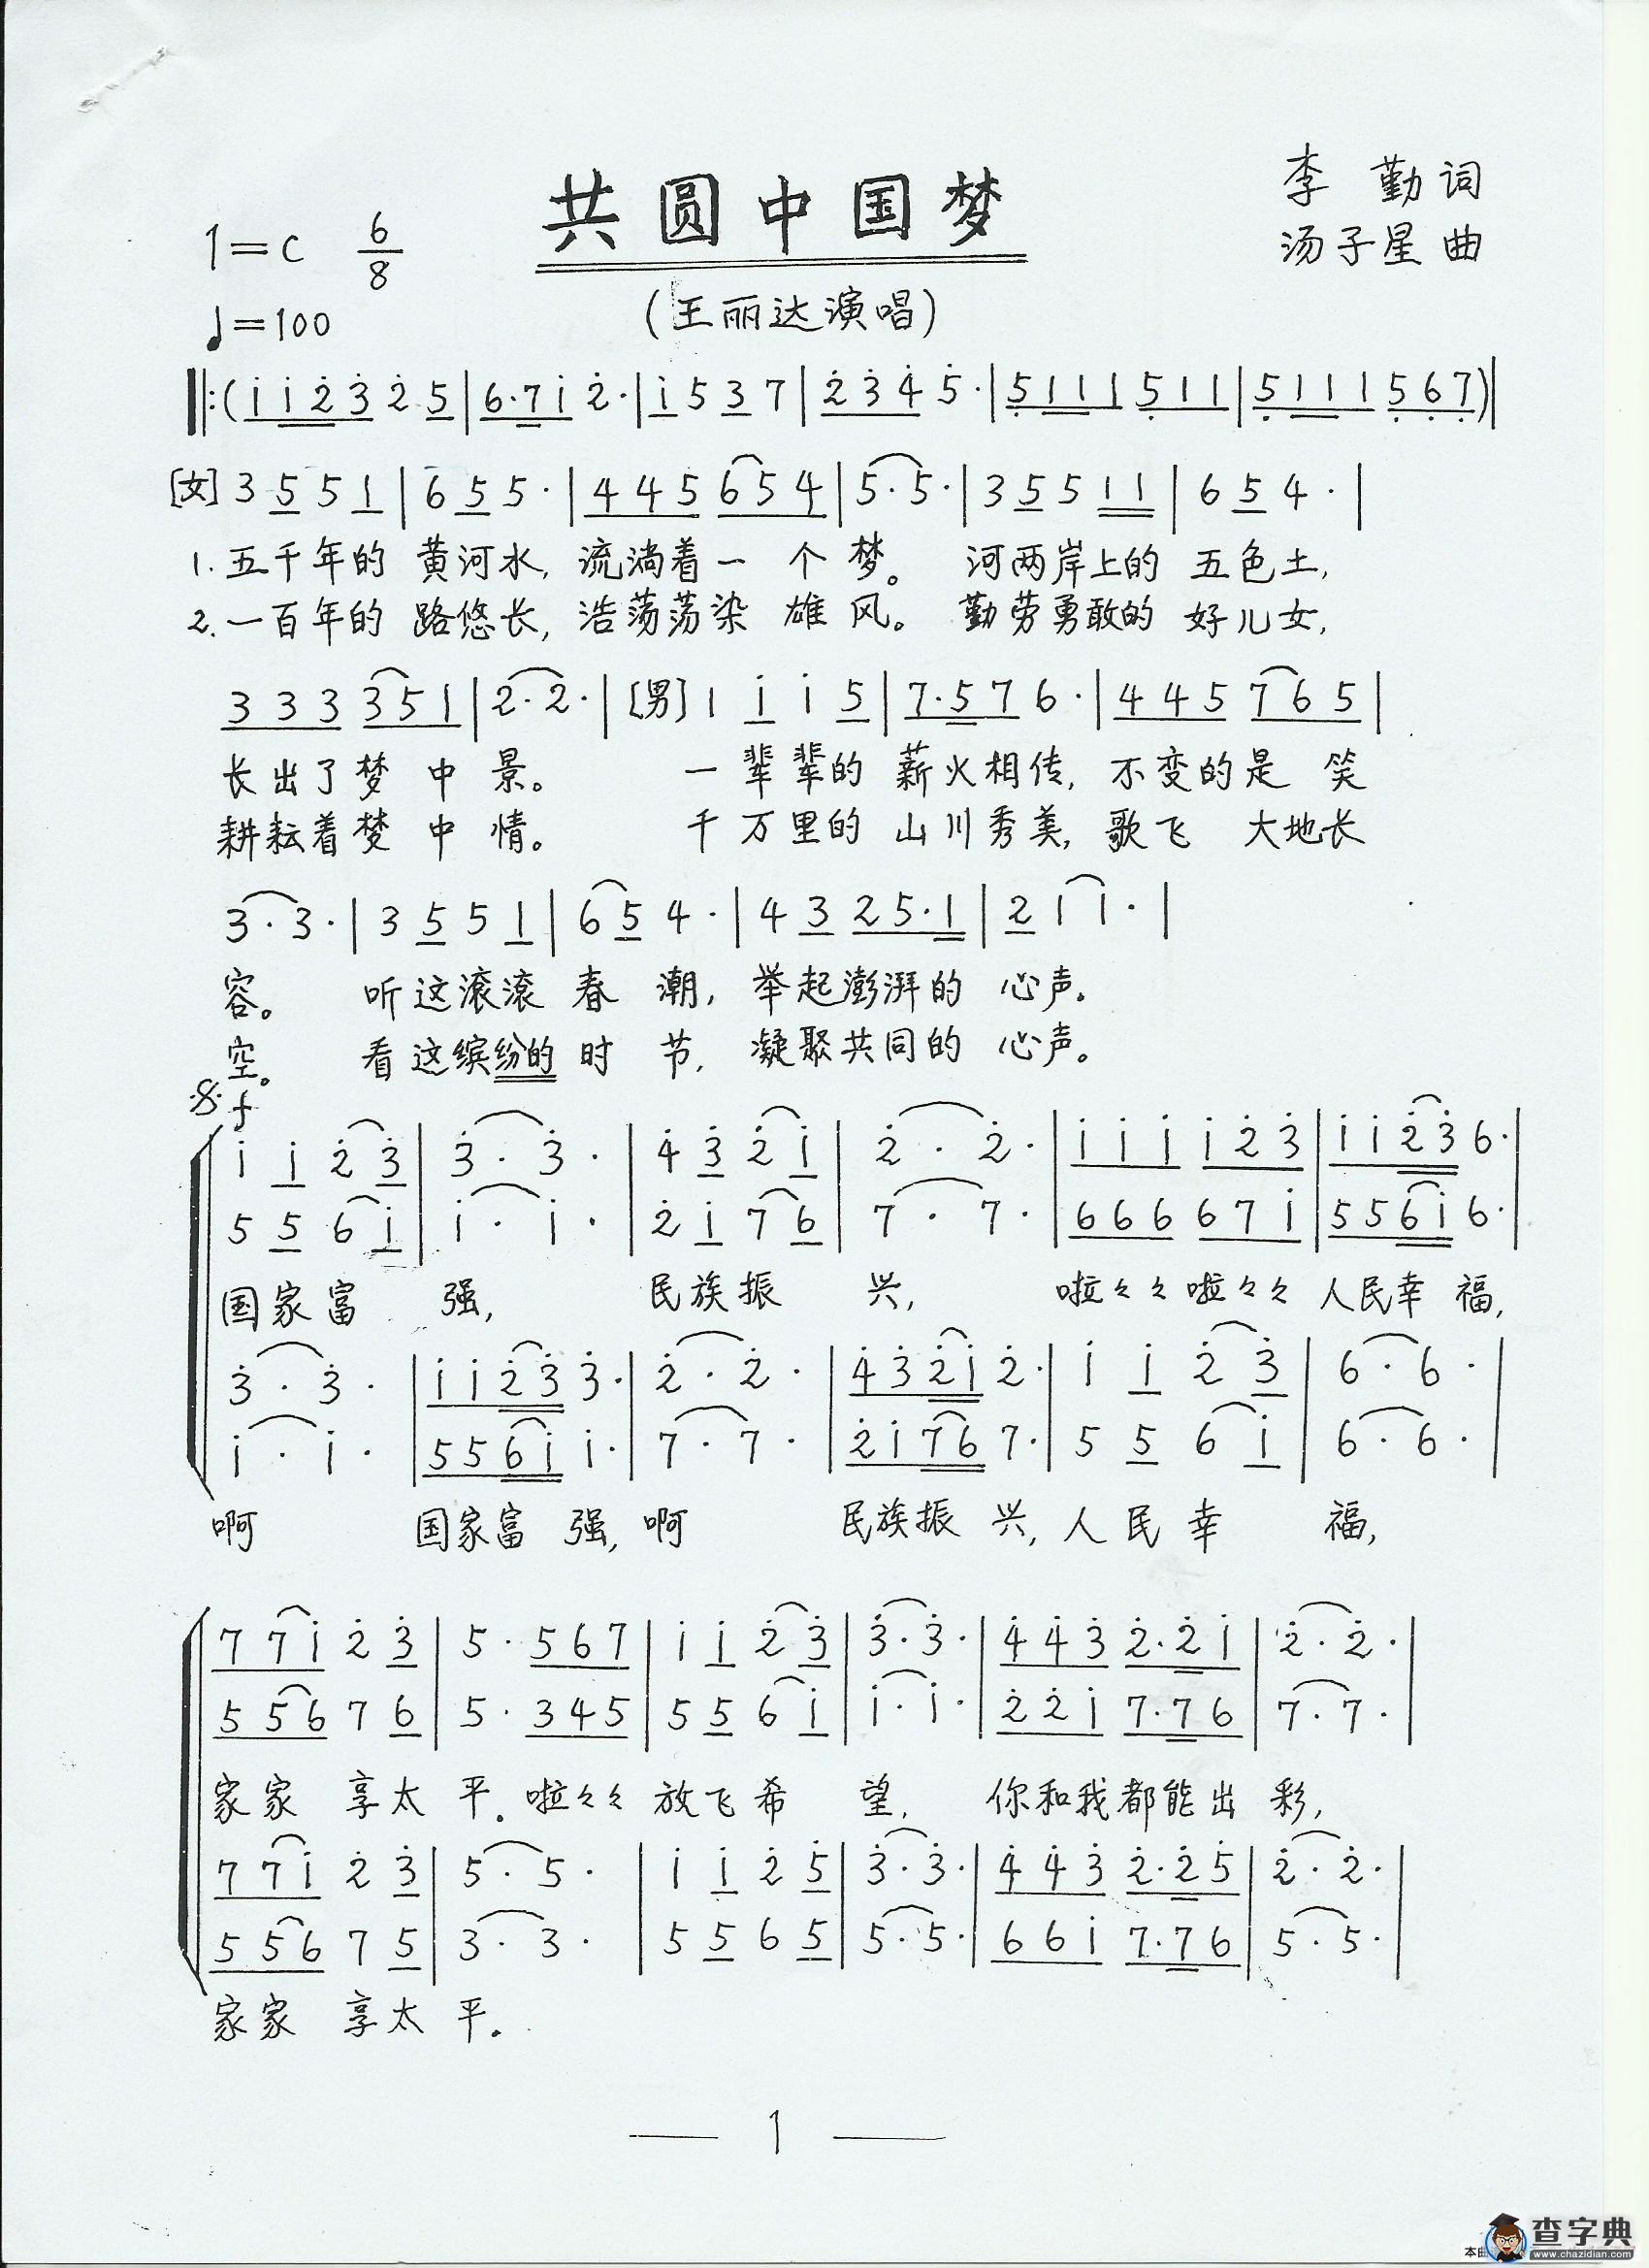 共圆中国梦
李 勤 词
1=C 6/8
汤子星 曲
♩=100
(王丽达演唱)
‖:(i̇ i̇ 2̇ 3̇ 2̇ 5|6·7 i̇ 2̇·|i̇ 5 3 7|2̇ 3̇ 4̇ 5̇·|5̣ 1 1 1 5̣ 1 1|5̣ 1 1 1 5̣ 6̣ 7̣)|
[女] 3 5 5 1|6 5 5·|4 4 5 6 5 4|5·5·|3 5 5 1 1|6 5 4·|
1. 五千年的 黄河水, 流淌着一 个 梦。 河两岸上的 五色土,
2. 一百年的 路悠长, 浩荡荡染 雄 风。 勤劳勇敢的 好儿女,
3 3 3 3 5 1|2·2·|[男] 1 i̇ i̇ 5|7·5 7 6·|4 4 5 7 6 5|
长出了梦 中 景。 一辈辈的 薪火相传, 不变的是 笑
耕耘着梦 中 情。 千万里的 山川秀美, 歌飞 大地长
3·3·|3 5 5 1|6 5 4·|4 3 2 5·1|2 1 1·|
容。 听这滚滚 春 潮, 举起澎湃的 心声。
空。 看这缤纷的 时 节, 凝聚共同的 心声。
𝄋 f
i̇ i̇ 2̇ 3̇|3̇·3̇·|4̇ 3̇ 2̇ i̇|2̇·2̇·|i̇ i̇ i̇ i̇ 2̇ 3̇|i̇ i̇ 2̇ 3̇ 6·|
5 5 6 i̇|i̇·i̇·|2̇ i̇ 7 6|7·7·|6 6 6 6 7 i̇|5 5 6 i̇ 6·|
国家富 强, 民族振 兴, 啦々々啦々々 人民幸 福,
3̇·3̇·|i̇ i̇ 2̇ 3̇ 3̇·|2̇·2̇·|4̇ 3̇ 2̇ i̇ 2̇·|i̇ i̇ 2̇ 3̇|6·6·|
i̇·i̇·|5 5 6 i̇ i̇·|7·7·|2̇ i̇ 7 6 7·|5 5 6 i̇|6·6·|
啊 国家富 强, 啊 民族振 兴, 人民幸 福,
7 7 i̇ 2̇ 3̇|5·5 6 7|i̇ i̇ 2̇ 3̇|3̇·3̇·|4̇ 4̇ 3̇ 2̇·2̇ i̇|2̇·2̇·|
5 5 6 7 6|5·3 4 5|5 5 6 i̇|i̇·i̇·|2̇ 2̇ i̇ 7·7 6|7·7·|
家家 享太 平。啦々々 放飞希 望, 你和我都能出 彩,
7 7 i̇ 2̇ 3̇|5·5·|i̇ i̇ 2̇ 5̇|3̇·3̇·|4̇ 4̇ 3̇ 2̇·2̇ 5̇|2̇·2̇·|
5 5 6 7 5|3·3·|5 5 6 5|5·5·|6 6 i̇ 7·7 6|5·5·|
家家 享太 平。
— 1 —
本曲
查字典
www.chazidian.com